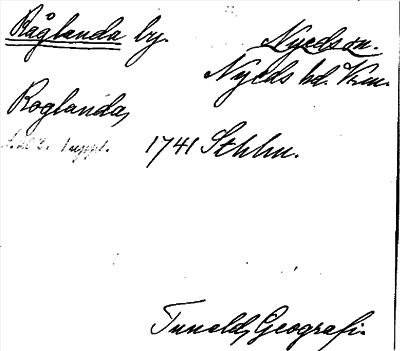 Råglanda by.
Nyeds sn.
Nyeds hd. Vrm.
Roglanda,
s. 203. 1 uppl. 1741 Sthlm.
Tuneld, Geografi.